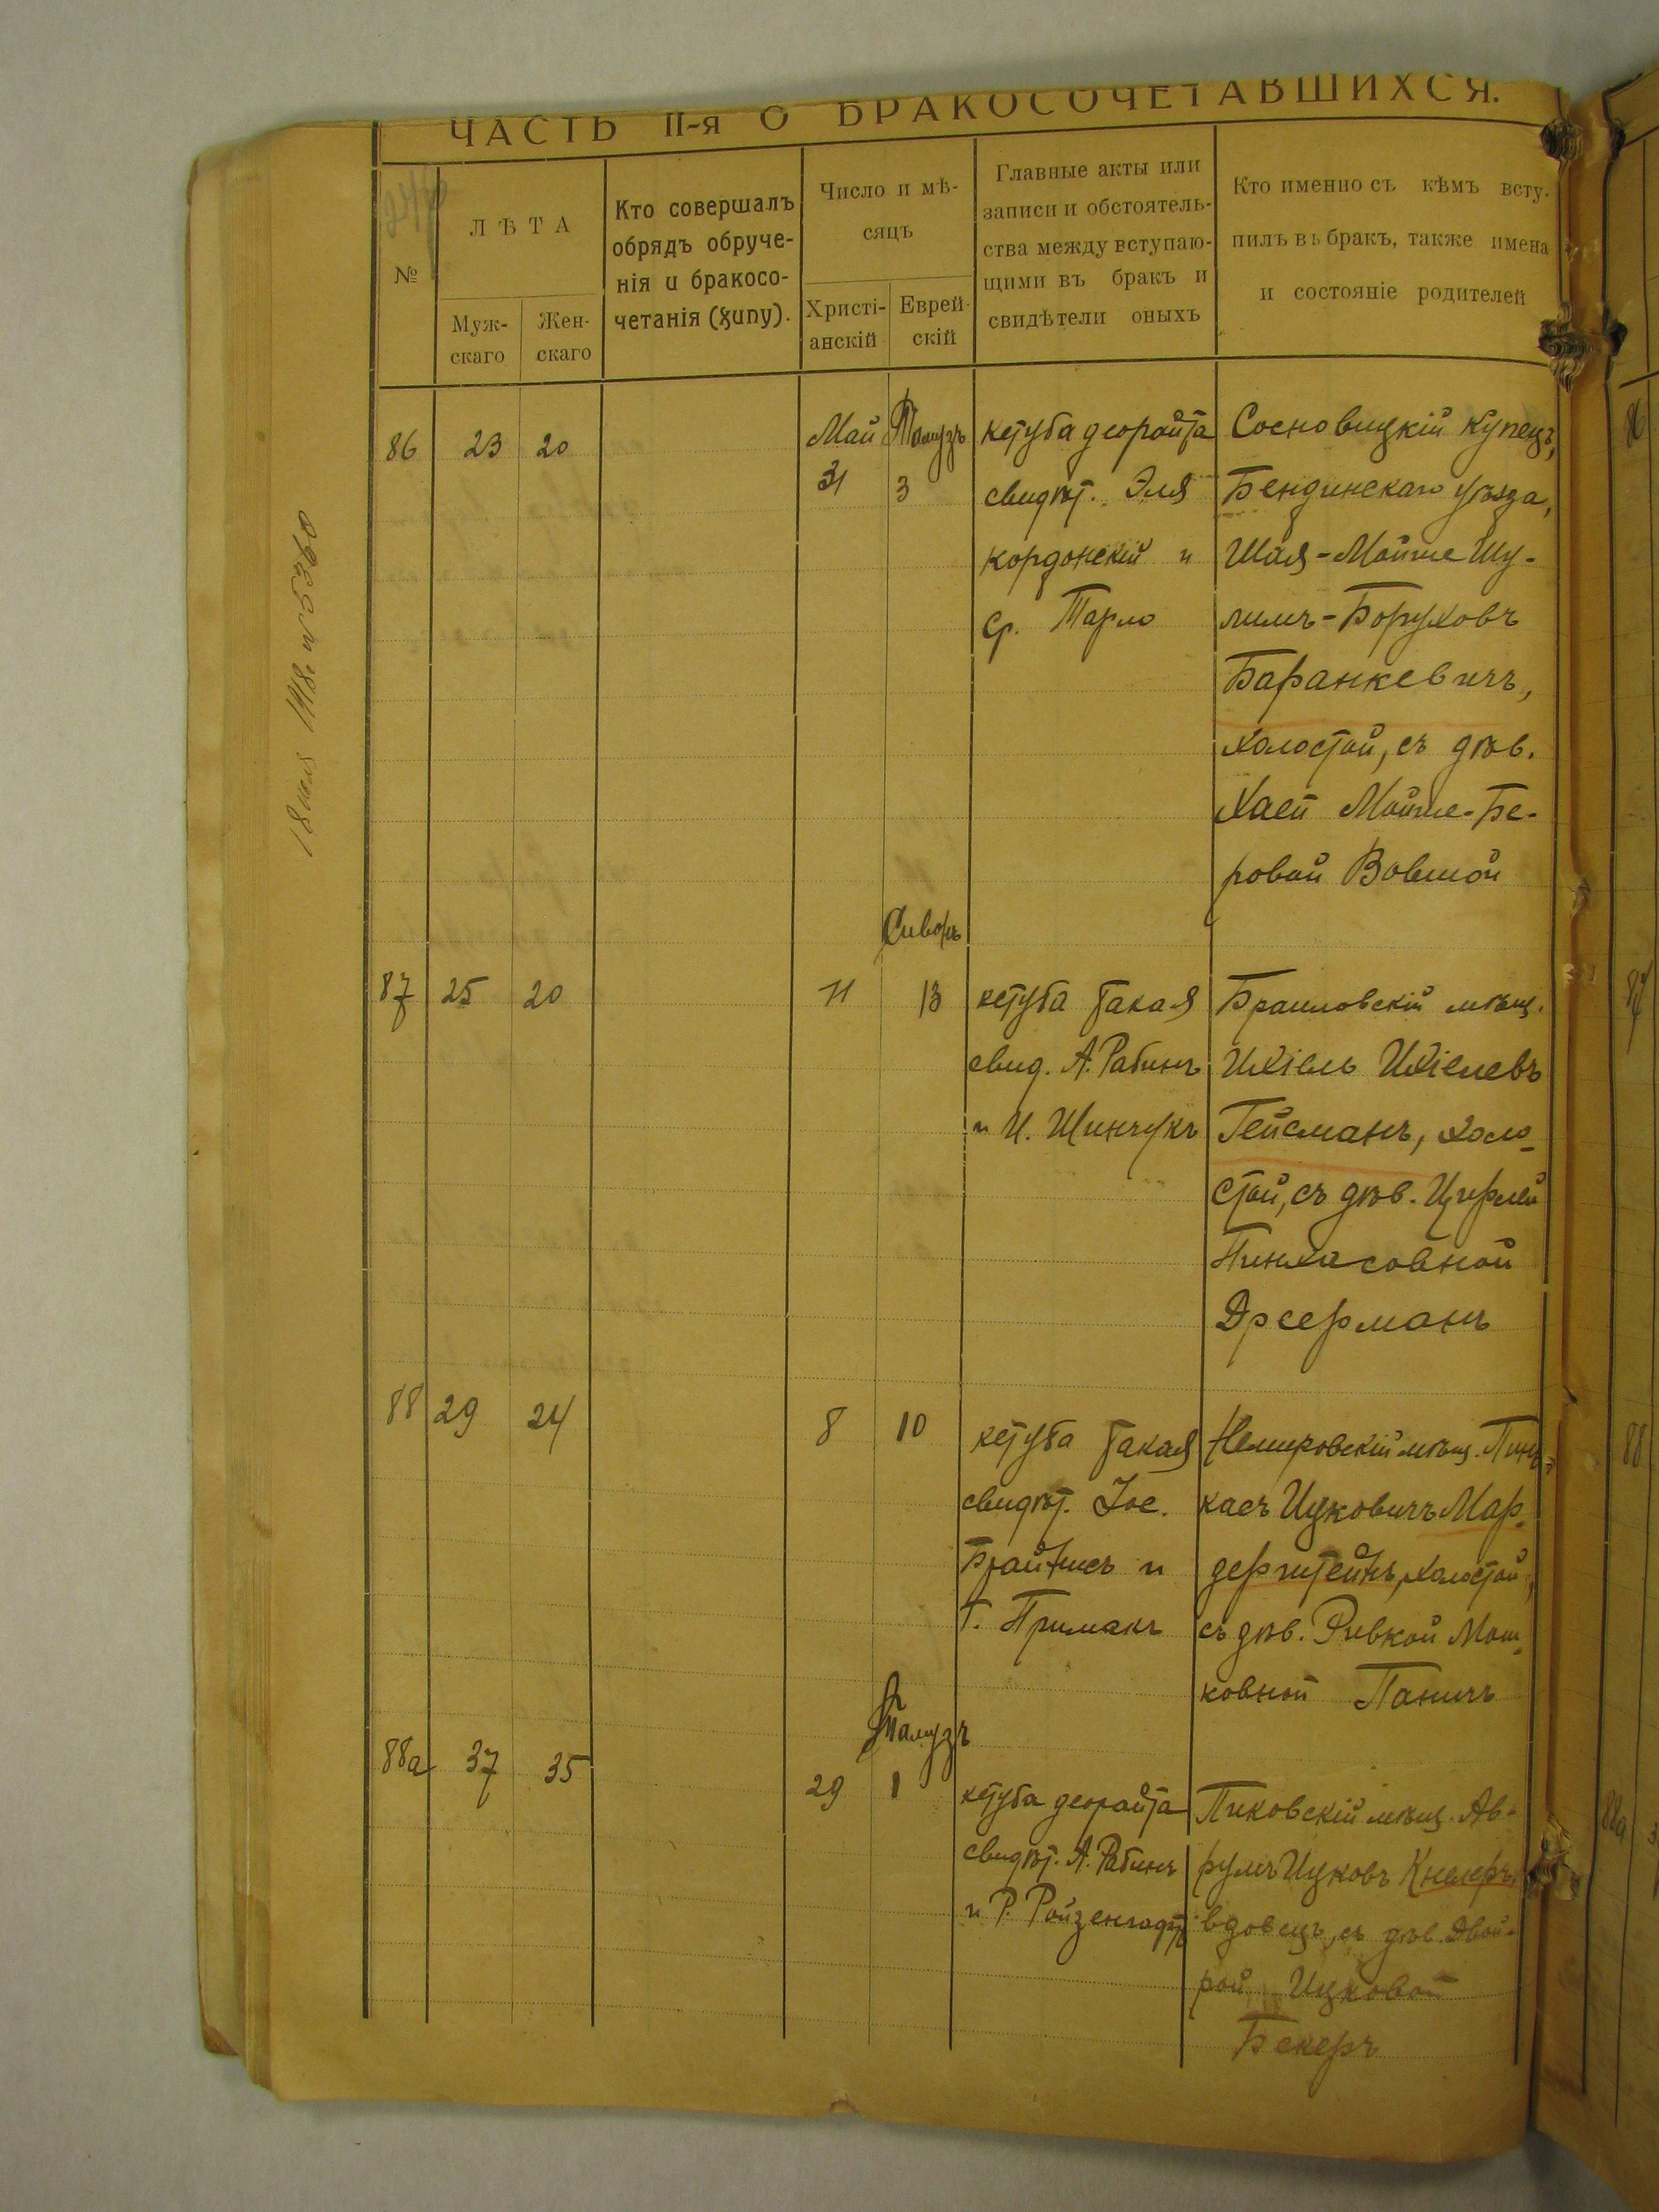 ЧАСТЬ II-я О БРАКОСОЧЕТАВШИХСЯ.
№
ЛѢТА
Муж-
скаго
Жен-
скаго
Кто совершалъ
обрядъ обруче-
нія и бракосо-
четанія (хупу).
Число и мѣ-
сяцъ
Христі-
анскій
Еврей-
скій
Главные акты или
записи и обстоятель-
ства между вступаю-
щими въ бракъ и
свидѣтели оныхъ
Кто именно съ кѣмъ всту-
пилъ въ бракъ, также имена
и состояніе родителей
18 1918 г. № 5360
86 23 20
Май
31
Тамузъ
3
кетуба деорайта
свидѣт. Эля
Кордонскій и
Ср. Тарло
Сосновицкій купецъ,
Бендинскаго уѣзда,
Шая-Мойше Шу-
лимъ-Боруховъ
Баранкевичъ,
холостой, съ дѣв.
Хаей Мойше-Бе-
ровой Вовшой
87 25 20
11
Сиворъ
13
кетуба такая
свид. А. Рабинъ
и И. Шинчукъ
Браиловскій мѣщ.
Ихіель Ихіелевъ
Гейсманъ, холо-
стой, съ дѣв. Цирлей
Пинхасовной
Дреерманъ
88 29 24
8 10
кетуба такая
свидѣт. Іос.
и
Г. Примакъ
Немировскій мѣщ. Пин-
касъ Ицковичъ Мар-
дерштейнъ, холостой,
съ дѣв. Ривкой Мош-
ковной Паничъ
88а 37 35
29
Тамузъ
1
кетуба деорайта
свидѣт. А. Рабинъ
и Р. Ройзенгартъ
Пиковскій мѣщ. Ав-
румъ Ицковъ Кнелеръ,
вдовецъ, съ дѣв. Двой-
рой Ицковой
Бекеръ
86
87
88
88а